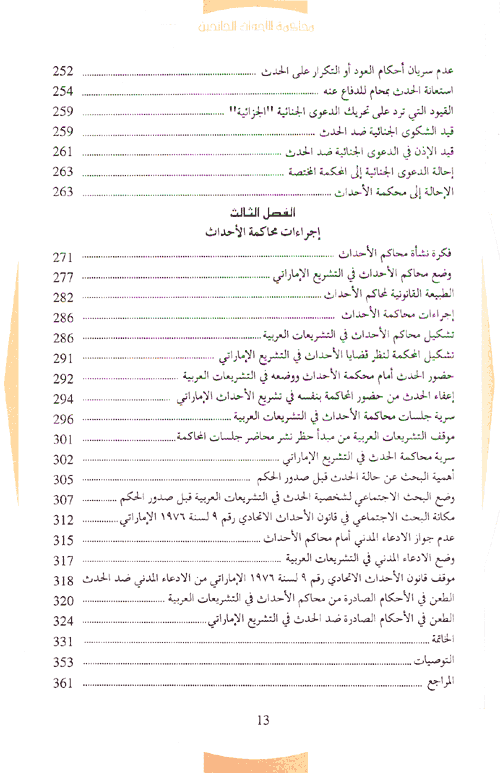 محاكمة الأحداث الجانحين
عدم سريان أحكام العود أو التكرار على الحدث 252
استعانة الحدث بمحام للدفاع عنه 254
القيود التي ترد على تحريك الدعوى الجنائية "الجزائية" 259
قيد الشكوى الجنائية ضد الحدث 259
قيد الإذن في الدعوى الجنائية ضد الحدث 261
إحالة الدعوى الجنائية إلى المحكمة المختصة 263
الإحالة إلى محكمة الأحداث 263
الفصل الثالث
إجراءات محاكمة الأحداث
فكرة نشأة محاكم الأحداث 271
وضع محاكم الأحداث في التشريع الإماراتي 277
الطبيعة القانونية لمحاكم الأحداث 282
إجراءات محاكمة الأحداث 286
تشكيل محاكم الأحداث في التشريعات العربية 286
تشكيل المحكمة لنظر قضايا الأحداث في التشريع الإماراتي 291
حضور الحدث أمام محكمة الأحداث ووضعه في التشريعات العربية 292
إعفاء الحدث من حضور المحاكمة بنفسه في تشريع الأحداث الإماراتي 294
سرية جلسات محاكمة الأحداث في التشريعات العربية 296
موقف التشريعات العربية من مبدأ حظر نشر محاضر جلسات المحاكمة 301
سرية محاكمة الحدث في التشريع الإماراتي 302
أهمية البحث عن حالة الحدث قبل صدور الحكم 305
وضع البحث الاجتماعي لشخصية الحدث في التشريعات العربية قبل صدور الحكم 307
مكانة البحث الاجتماعي في قانون الأحداث الاتحادي رقم ٩ لسنة ١٩٧٦ الإماراتي 312
عدم جواز الادعاء المدني أمام محاكم الأحداث 315
وضع الادعاء المدني في التشريعات العربية 317
موقف قانون الأحداث الاتحادي رقم ٩ لسنة ١٩٧٦ الإماراتي من الادعاء المدني ضد الحدث 318
الطعن في الأحكام الصادرة من محاكم الأحداث في التشريعات العربية 320
الطعن في الأحكام الصادرة ضد الحدث في التشريع الإماراتي 324
الخاتمة 331
التوصيات 353
المراجع 361
13